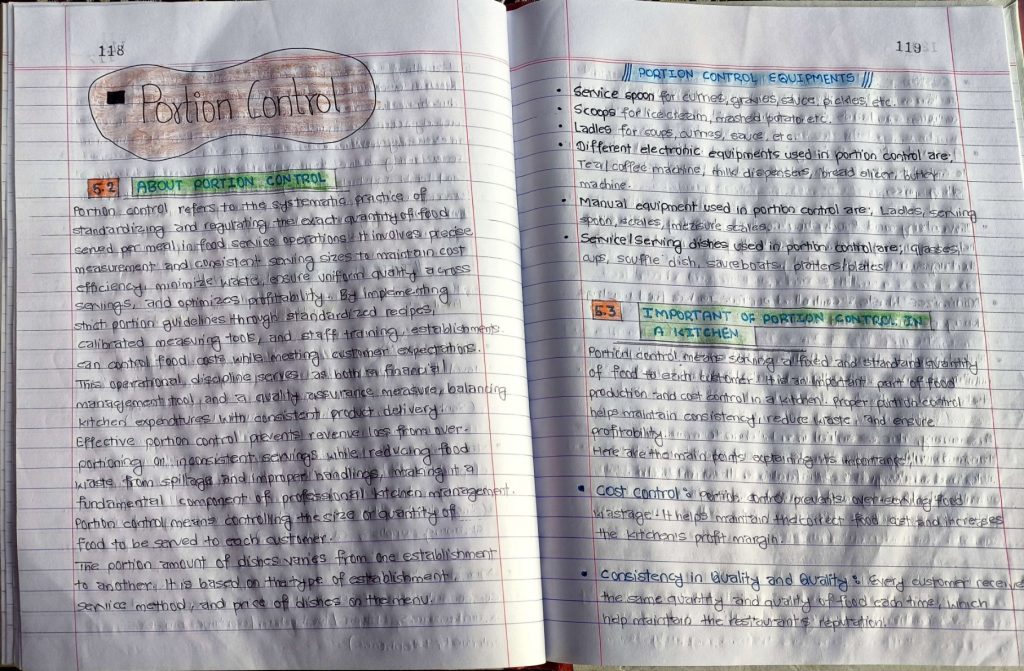 118
Portion Control
5.2 ABOUT PORTION CONTROL
Portion control refers to the systematic practice of
standardizing and regurating the exact quantity of food
served per meal in food service operations. It involves precise
measurement and consistent serving sizes to maintain cost
efficiency, minimize waste, ensure uniform quality across
servings, and optimizes profitability. By implementing
strict portion guidelines through standardized recipes,
calibrated measuring tools, and staff training, establishments
can control food costs while meeting customer expectations.
This operational discipline serves as both a financial
management tool and a quality assurance measure, balancing
kitchen expenditures with consistent product delivery.
Effective portion control prevents revenue loss from over-
portioning or inconsistent servings while reducing food
waste from spillage and improper handlings, making it a
fundamental component of professional kitchen management.
Portion control means controlling the size or quantity of
food to be served to each customer.
The portion amount of dishes varies from one establishment
to another. It is based on the type of establishment,
service method, and price of dishes on the menu.
119
PORTION CONTROL EQUIPMENTS
• Service spoon for curries, gravies, sauce, pickles, etc.
• Scoops for ice cream, mashed potato etc.
• Ladles for soups, curries, sauce, etc.
• Different electronic equipments used in portion control are;
Tea/ coffee machine, milk dispensers, bread slicer, butter
machine.
• Manual equipment used in portion control are; Ladles, serving
spoon, scales, measure
• Service/Serving dishes used in portion control are; glasses,
cups, souffle dish, sauceboats, platters/plates.
5.3 IMPORTANT OF PORTION CONTROL IN
A KITCHEN
Portion control means serving a fixed and standard quantity
of food to each customer. It is an important part of food
production and cost control in a kitchen. Proper portion control
helps maintain consistency, reduce waste, and ensure
profitability.
Here are the main points explaining its importance;
• Cost control: portion control prevents over-serving food
wastage. It helps maintain the correct food cost and increases
the kitchen's profit margin.
• Consistency in Quality and Quality: Every customer receive
the same quantity and quality of food each time, which
help maintain the restaurant's reputation.